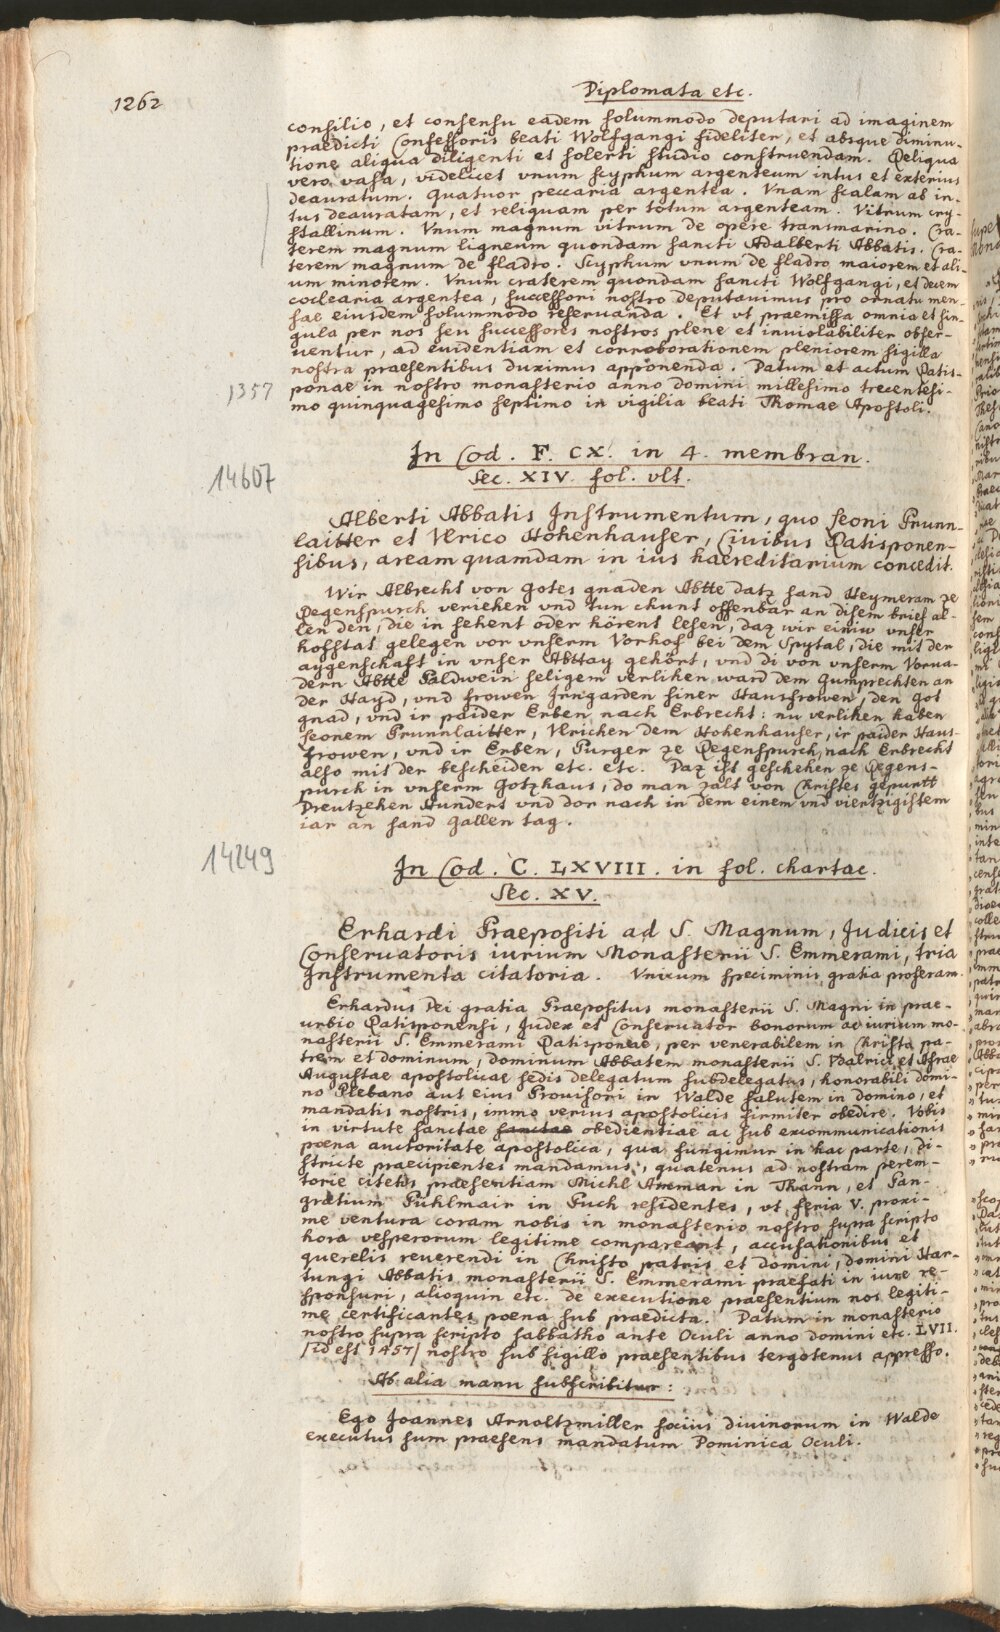 1262
Diplomata etc.
consilio, et consensu eadem solummodo deputari ad imaginem
praedicti Confessoris beati Wolfgangi fideliter, et absque diminu-
tione aliqua diligenti et solerti studio construendam. Reliqua
vero vasa, videlicet vnum scyphum argenteum intus et exterius
deauratum. Quatuor peccaria argentea. Vnam scalam ab in-
tus deauratam, et reliquam per totum argenteam. Vitrum cry-
stallinum. Vnum magnum vitrum de opere transmarino. Cra-
terem magnum ligneum quondam sancti Adalberti Abbatis. Cra-
terem magnum de fladro. Scyphum vnum de fladro maiorem et ali-
um minorem. Vnum craterem quondam sancti Wolfgangi, et decem
coclearia argentea, successori nostro deputauimus pro ornatu men-
sae eiusdem solummodo reseruanda. Et vt praemissa omnia et sin-
gula per nos seu successores nostros plene et inuiolabiliter obser-
uentur, ad euidentiam et corroborationem pleniorem sigilla
nostra praesentibus duximus apponenda. Datum et actum Ratis-
1357
ponae in nostro monasterio anno domini millesimo trecentesi-
mo quinquagesimo septimo in vigilia beati Thomae Apostoli.
In Cod. F. CX. in 4. membran.
14607
Sec. XIV. fol. vlt.
Alberti Abbatis Instrumentum, quo Seoni Prunn-
laitter et Vlrico Hohenhauser, Ciuibus Ratisponen-
sibus, aream quamdam in ius haereditarium concedit.
Wir Albrecht von Gotes gnaden Abtte datz sand Heymeram ze
Regenspurch veriehen vnd tun chunt offenbar an disem brief al-
len den, die in sehent oder hörent lesen, daz wir einiw vnser
hofstat gelegen vor vnserm Vorhof bei dem Spytal, die mit der
aygenschaft in vnser Abttay gehört, vnd di von vnserm Vorua-
dern Abtte Paldwein seligem verlihen ward dem Gumprechten an
der Hayd, vnd frowen Irngarden siner Hausfrowen, den Got
gnad, vnd ir paider Erben nach Erbrecht: nu verlihen haben
Seonem Prunnlaitter, Vlrichen dem Hohenhauser, ir paider Haus-
frowen, vnd ir Erben, Purger ze Regenspurch, nach Erbrecht
also mit der bescheiden etc. etc. Daz ist geschehen ze Regens-
purch in vnserm Gotzhaus, do man zalt von Christes gepurtt
Dreutzehen Hundert vnd dor nach in dem einem vnd viertzigistem
iar an sand Gallen tag.
14249
In Cod. C. LXVIII. in fol. chartac.
Sec. XV.
Erhardi Praepositi ad S. Magnum, Judicis et
Conseruatoris iurium Monasterii S. Emmerami, tria
Instrumenta citatoria. Vnicum speciminis gratia proferam.
Erhardus Dei gratia Praepositus monasterii S. Magni in prae-
urbio Ratisponensi, Judex et Conseruator bonorum ac iurium mo-
nasterii S. Emmerami Ratisponae, per venerabilem in Christo pa-
trem et dominum, dominum Abbatem monasterii S. Vdalrici et Afrae
Augustae apostolicae sedis delegatum subdelegatus, honorabili domi-
no Plebano aut eius Prouisori in Walde salutem in domino, et
mandatis nostris, immo verius apostolicis firmiter obedire. Vobis
in virtute sanctae sanctae obedientiae ac sub excommunicationis
poena auctoritate apostolica, qua fungimur in hac parte, di-
stricte praecipientes mandamus, quatenus ad nostram perem-
torie citetis praesentiam Michl Amman in Thann, et Pan-
gratium Pühlmair in Puch residentes, vt feria V. proxi-
me ventura coram nobis in monasterio nostro supra scripto
hora vesperorum legitime compareant, accusationibus et
querelis reuerendi in Christo patris et domini, domini Har-
tungi Abbatis monasterii S. Emmerami praefati in iure re-
sponsuri, alioquin etc. de executione praesentium nos legiti-
me certificantes poena sub praedicta. Datum in monasterio
nostro supra scripto sabbatho ante Oculi anno domini etc. LVII.
[id est 1457] nostro sub sigillo praesentibus tergotenus appresso.
Ab alia manu subscribitur:
Ego Joannes Arnoltzmiller socius diuinorum in Walde
executus sum praesens mandatum Dominica Oculi.